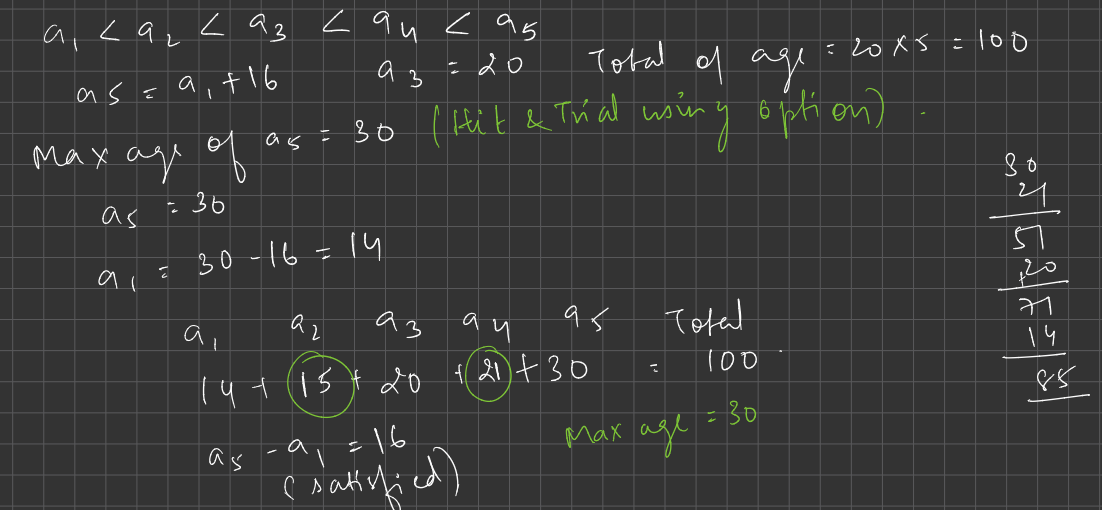 a₁ < a₂ < a₃ < a₄ < a₅
a₅ = a₁ + 16 a₃ = 20 Total of age = 20 × 5 = 100
Max age of a₅ = 30 (Hit & Trial using option).
a₅ = 30
a₁ = 30 - 16 = 14
a₁ a₂ a₃ a₄ a₅ Total
14 + 15 + 20 + 21 + 30 = 100
a₅ - a₁ = 16 Max age = 30
(satisfied)
30
21
51
+20
71
14
85